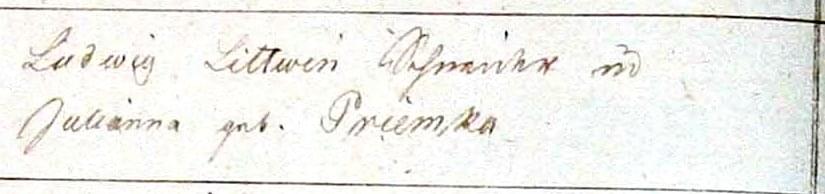 Ludwig Littwin Schneider ud
Julianna geb. Priemka